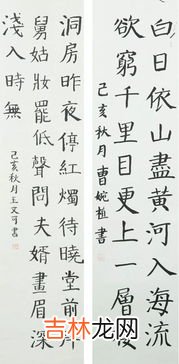 白日依山盡黃河入海流
欲窮千里目更上一層樓
己亥秋月曹婉植書
洞房昨夜停紅燭待曉堂前拜
舅姑妝罷低聲問夫婿畫眉深
淺入時無
己亥秋月王又可書
吉林龙网